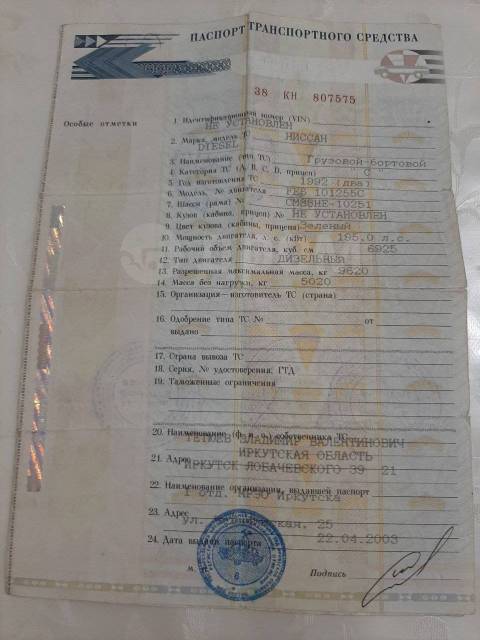 ПАСПОРТ ТРАНСПОРТНОГО СРЕДСТВА
38 КН 807575
Особые отметки
1. Идентификационный номер (VIN)
НЕ УСТАНОВЛЕН
2. Марка, модель ТС НИССАН
DIESEL
3. Наименование (тип ТС) Грузовой-бортовой
4. Категория ТС (А, В, С, D, прицеп) "С"
5. Год изготовления ТС 1992 (два)
6. Модель, № двигателя
7. Шасси (рама) №
8. Кузов (кабина, прицеп) № НЕ УСТАНОВЛЕН
9. Цвет кузова (кабины, прицепа) Зеленый
10. Мощность двигателя, л. с. (кВт) 195.0 л.с.
11. Рабочий объем двигателя, куб. см 6925
12. Тип двигателя ДИЗЕЛЬНЫЙ
13. Разрешенная максимальная масса, кг 9620
14. Масса без нагрузки, кг 5020
15. Организация—изготовитель ТС (страна)
16. Одобрение типа ТС № от
выдано
17. Страна вывоза ТС
18. Серия, № удостоверения, ГТД
19. Таможенные ограничения
20. Наименование (ф. и. о.) собственника ТС
ВЛАДИМИР ВАЛЕНТИНОВИЧ
ИРКУТСКАЯ ОБЛАСТЬ
21. Адрес
ИРКУТСК ЛОБАЧЕВСКОГО 39 21
22. Наименование организации, выдавшей паспорт
1 отд. МРЭО Иркутска
23. Адрес
ул. 25
24. Дата выдачи паспорта 22.04.2003
М. Подпись